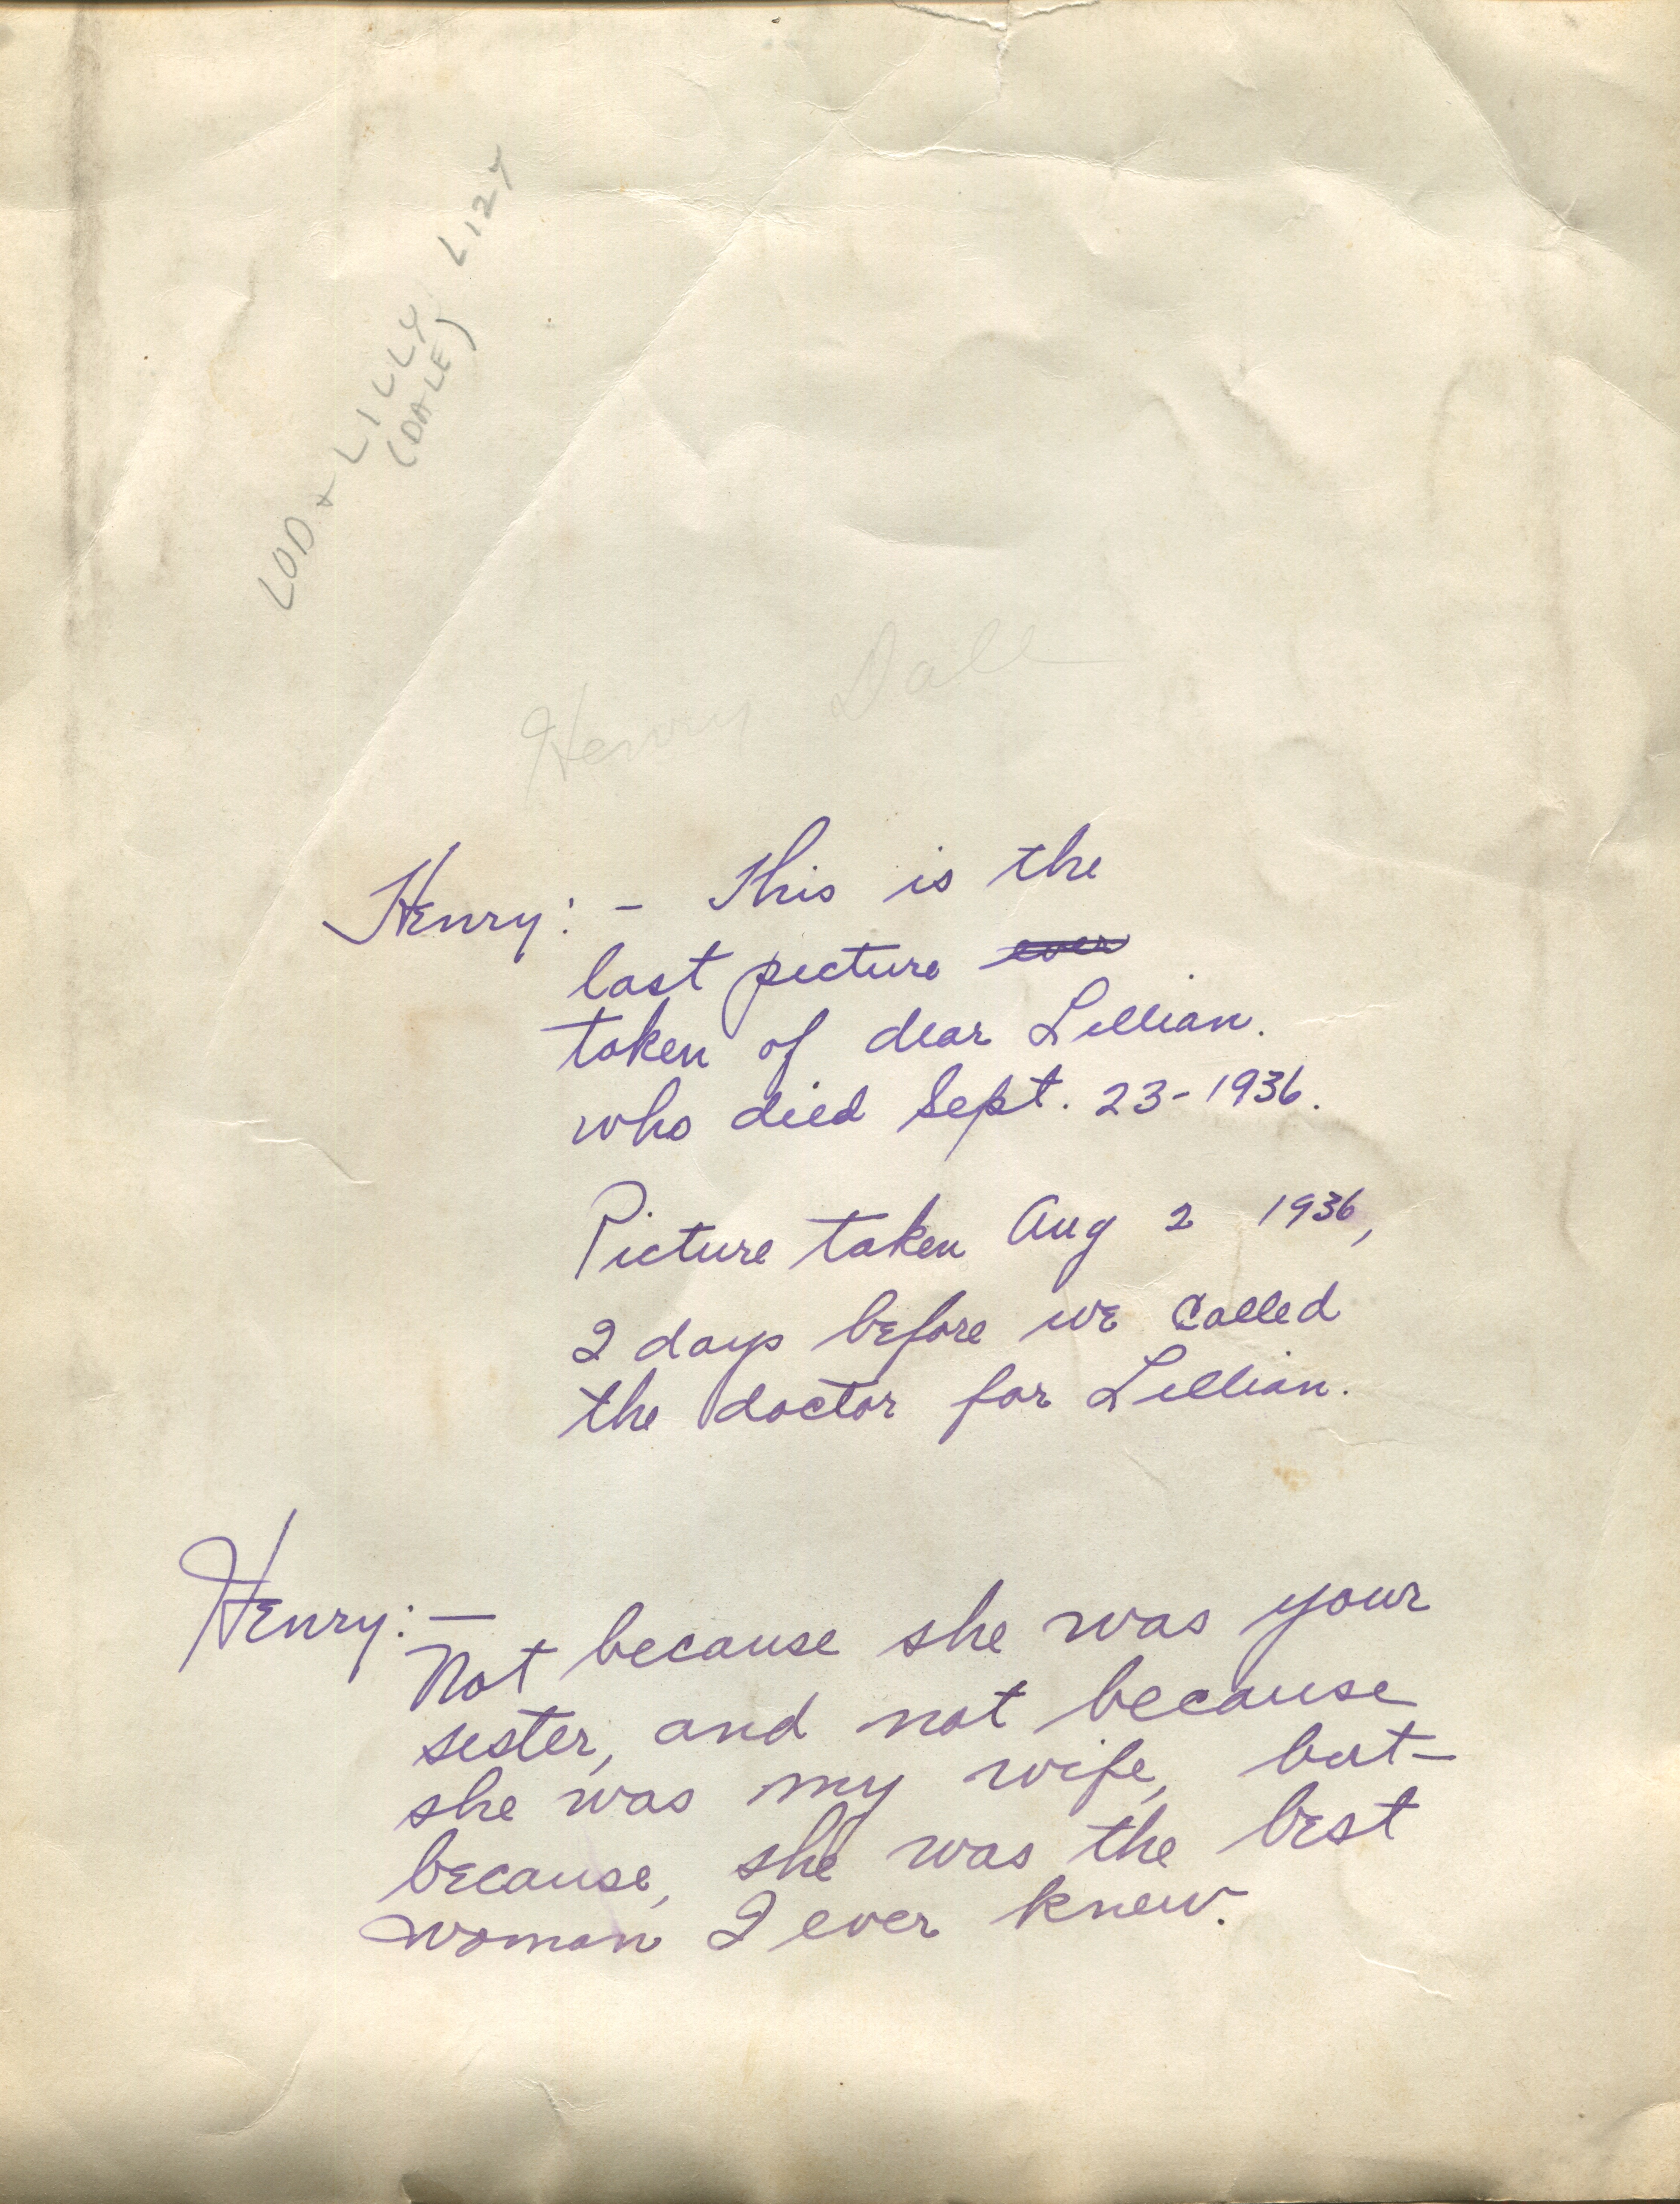 LOD + LILLY LIZY
(DALE)
Henry Dale
Henry: - This is the
last picture ever
taken of dear Lillian.
who died Sept. 23-1936.
Picture taken Aug 2 1936,
2 days before we called
the doctor for Lillian.
Henry: -
Not because she was your
sister, and not because
she was my wife, but-
because, she was the best
woman I ever knew.